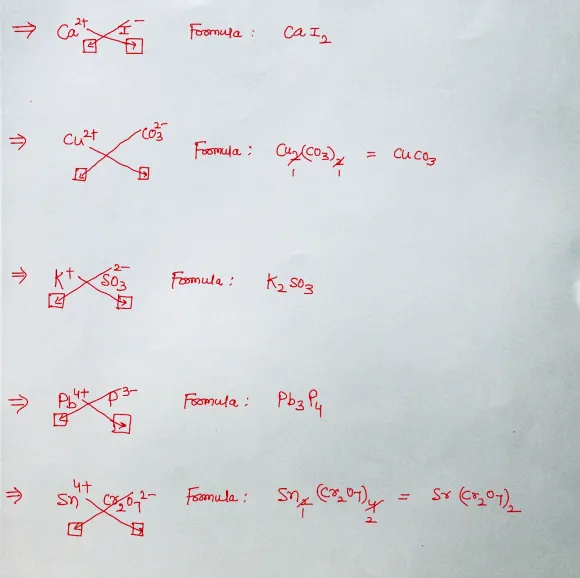 ⇒ Ca²⁺ I⁻ Formula : CaI₂
⇒ Cu²⁺ CO₃²⁻ Formula : Cu₂(CO₃)₂ = CuCO₃
1 1
⇒ K⁺ SO₃²⁻ Formula : K₂SO₃
⇒ Pb⁴⁺ P³⁻ Formula : Pb₃P₄
⇒ Sn⁴⁺ Cr₂O₇²⁻ Formula : Sn₂(Cr₂O₇)₄ = Sr(Cr₂O₇)₂
1 2